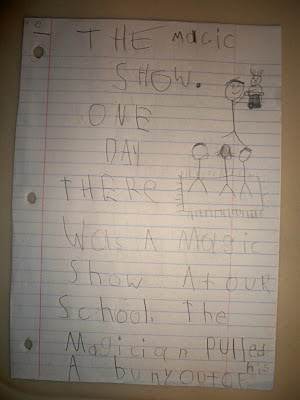 THE magic
SHOW.
ONE
DAY
tHERE
Was A Magic
Show At our
School. The
Magician Pulled
A bunyoutof his